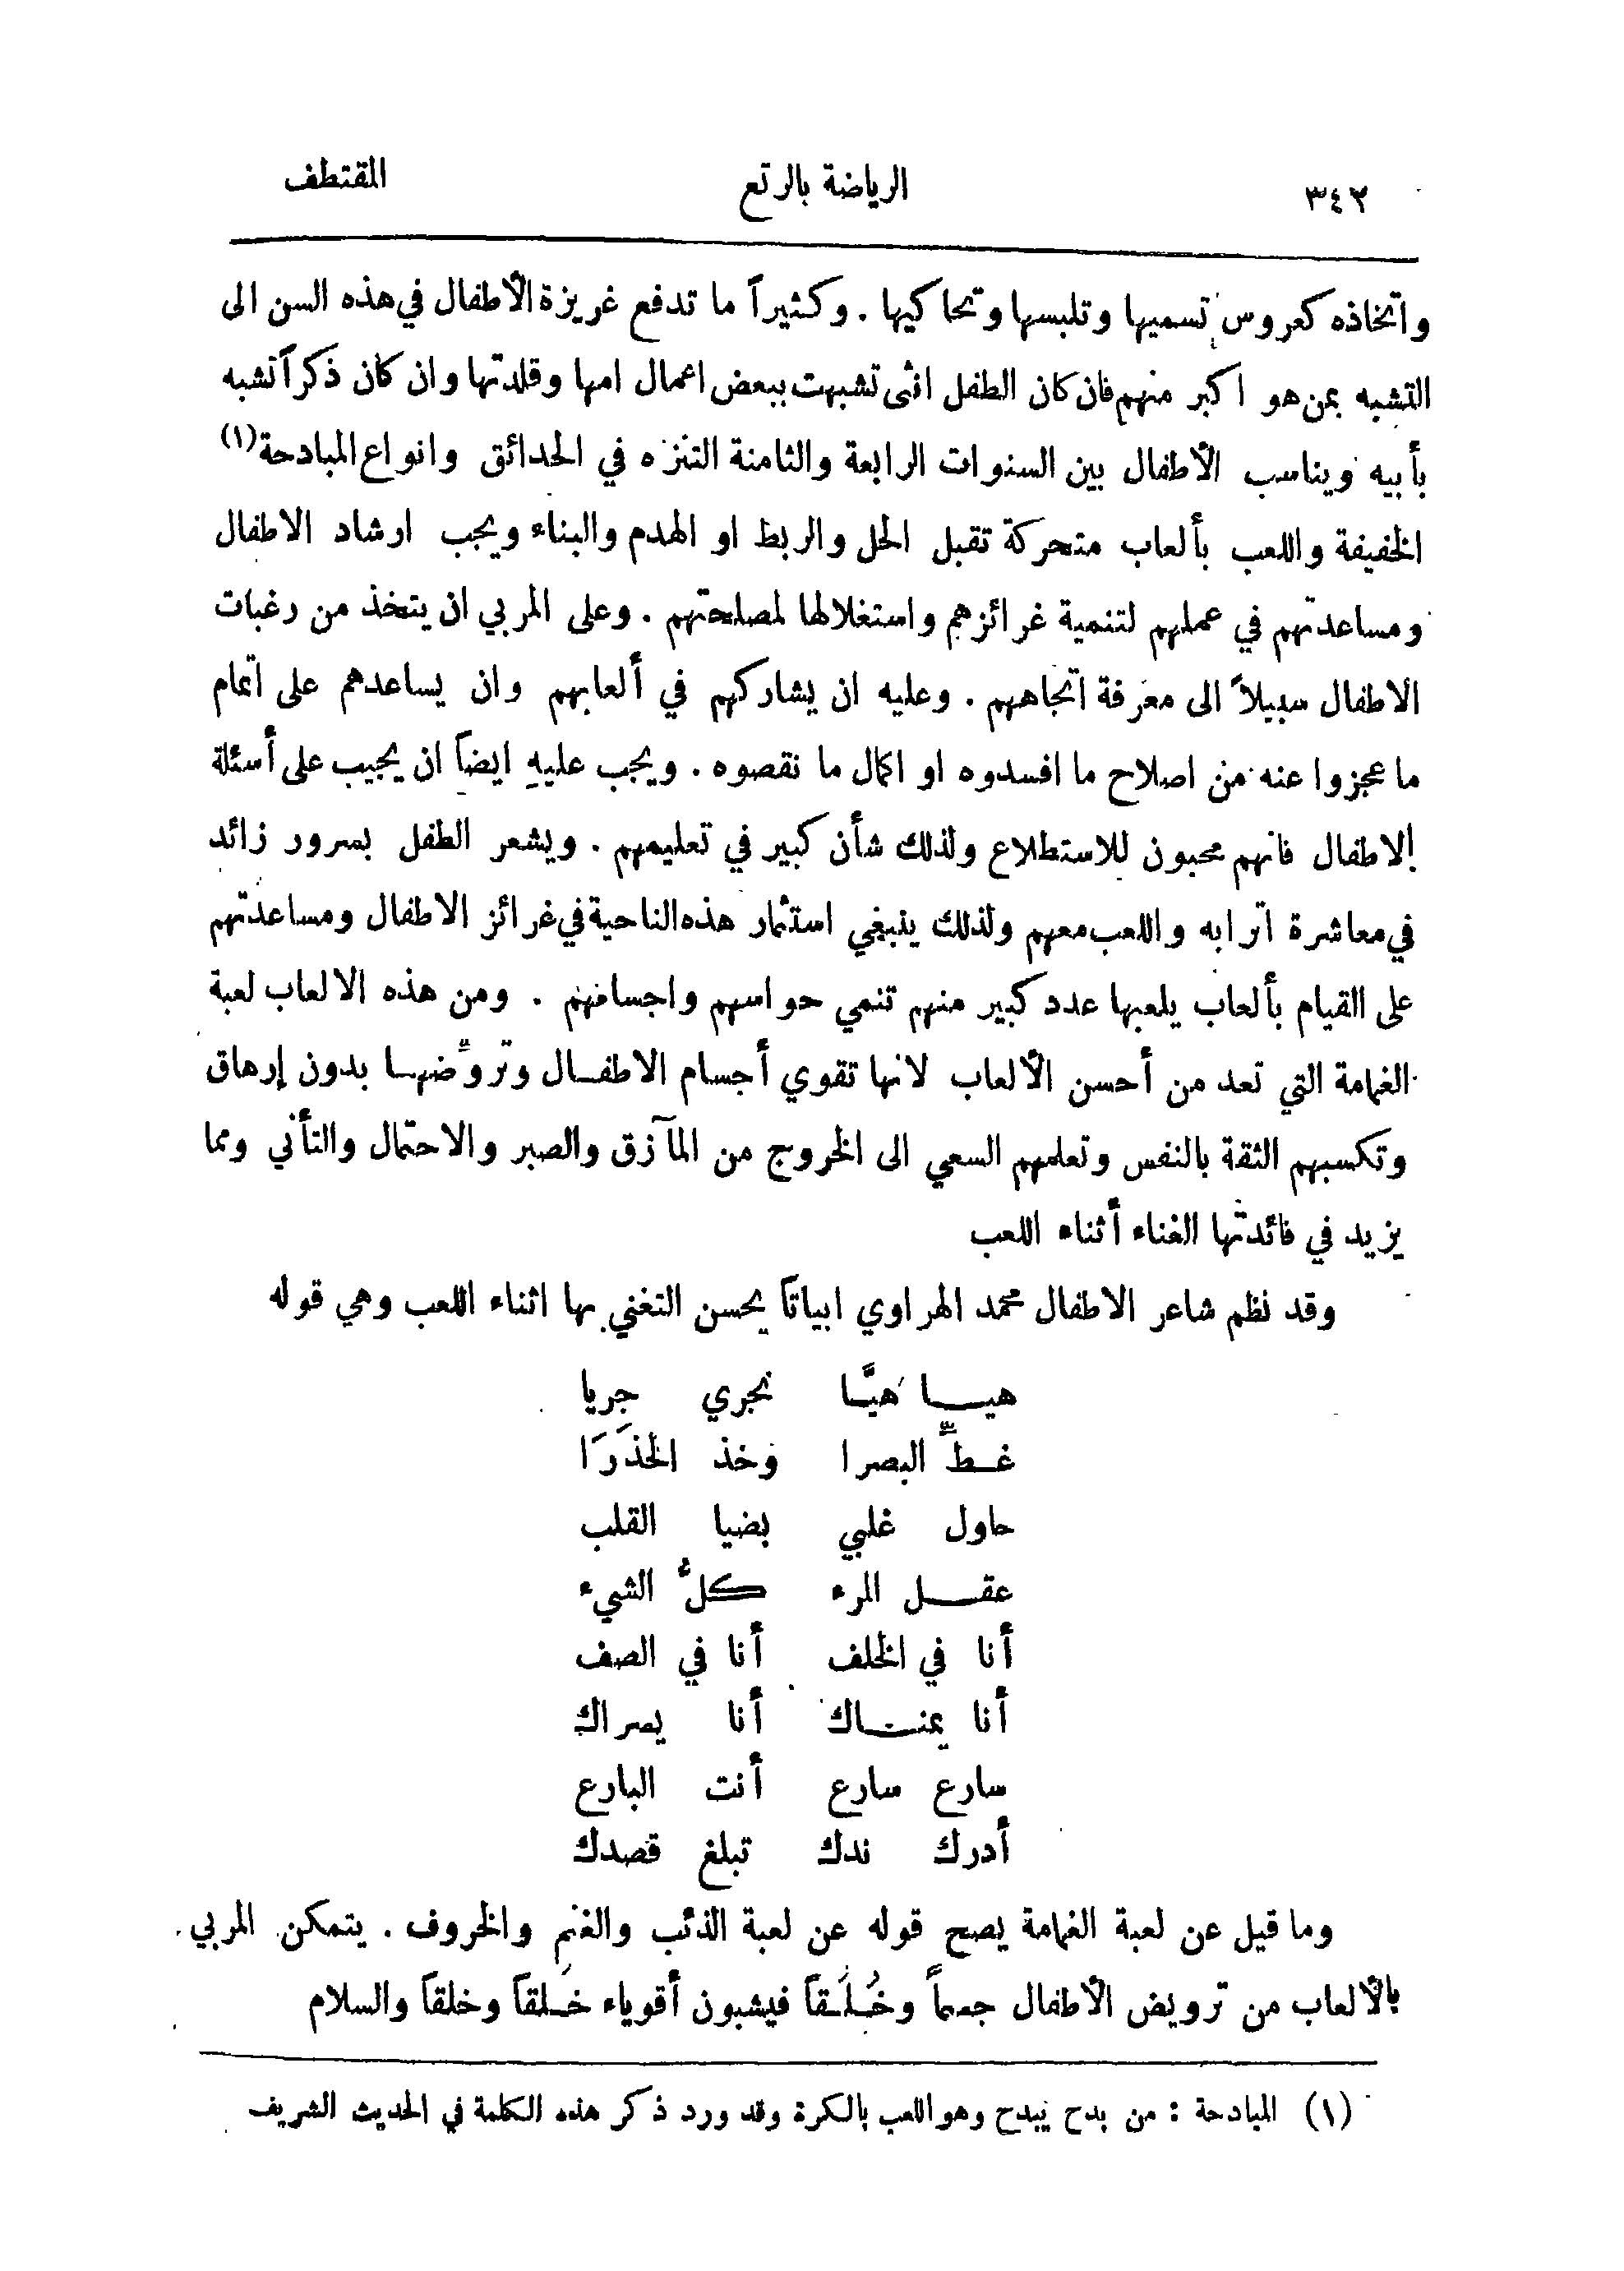 ٣٤٢ الرياضة بالرتع المقتطف
واتخاذه كعروس تسميها وتلبسها وتحاكيها . وكثيراً ما تدفع غريزة الأطفال في هذه السن الى
التشبه بمن هو اكبر منهم فان كان الطفل انثى تشبهت ببعض اعمال امها وقلدتها وان كان ذكراً تشبه
بأبيه ويناسب الأطفال بين السنوات الرابعة والثامنة التنزه في الحدائق وانواع المبادحة (١)
الخفيفة واللعب بألعاب متحركة تقبل الحل والربط او الهدم والبناء ويجب ارشاد الاطفال
ومساعدتهم في عملهم لتنمية غرائزهم واستغلالها لمصلحتهم . وعلى المربي ان يتخذ من رغبات
الاطفال سبيلاً الى معرفة اتجاههم . وعليه ان يشاركهم في ألعابهم وان يساعدهم على اتمام
ما عجزوا عنه من اصلاح ما افسدوه او اكمال ما نقصوه . ويجب عليهِ ايضاً ان يجيب على أسئلة
الاطفال فانهم محبون للاستطلاع ولذلك شأن كبير في تعليمهم . ويشعر الطفل بسرور زائد
في معاشرة اترابه واللعب معهم ولذلك ينبغي استثمار هذه الناحية في غرائز الاطفال ومساعدتهم
على القيام بألعاب يلعبها عدد كبير منهم تنمي حواسهم واجسامهم . ومن هذه الالعاب لعبة
الغمامة التي تعد من أحسن الألعاب لانها تقوي أجسام الاطفال وتروّضها بدون إرهاق
وتكسبهم الثقة بالنفس وتعلمهم السعي الى الخروج من المآزق والصبر والاحتمال والتأني ومما
يزيد في فائدتها الغناء أثناء اللعب
وقد نظم شاعر الاطفال محمد الهراوي ابياتاً يحسن التغني بها اثناء اللعب وهي قوله
هيا هيَّا نجري جريا
غطِّ البصرا وخذ الحذَرَا
حاول غلبي بضيا القلب
عقل المرء كلُّ الشيء
أنا في الخلف أنا في الصف
أنا يمناك أنا يسراك
سارع سارع أنت البارع
أدرك ندك تبلغ قصدك
وما قيل عن لعبة الغمامة يصح قوله عن لعبة الذئب والغنم والخروف . يتمكن المربي
بالألعاب من ترويض الأطفال جسماً وخُلُقاً فيشبون أقوياء خَلقاً وخلقاً والسلام
(١) المبادحة : من بدح يبدح وهو اللعب بالكرة وقد ورد ذكر هذه الكلمة في الحديث الشريف